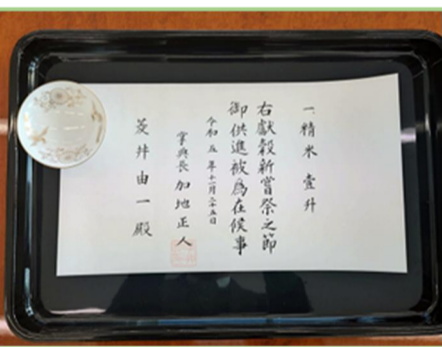 一、精米 壹升
右獻穀新嘗祭之節
御供進被為在候事
令和五年十一月二十五日
掌典長 加地正人
菱井由一殿